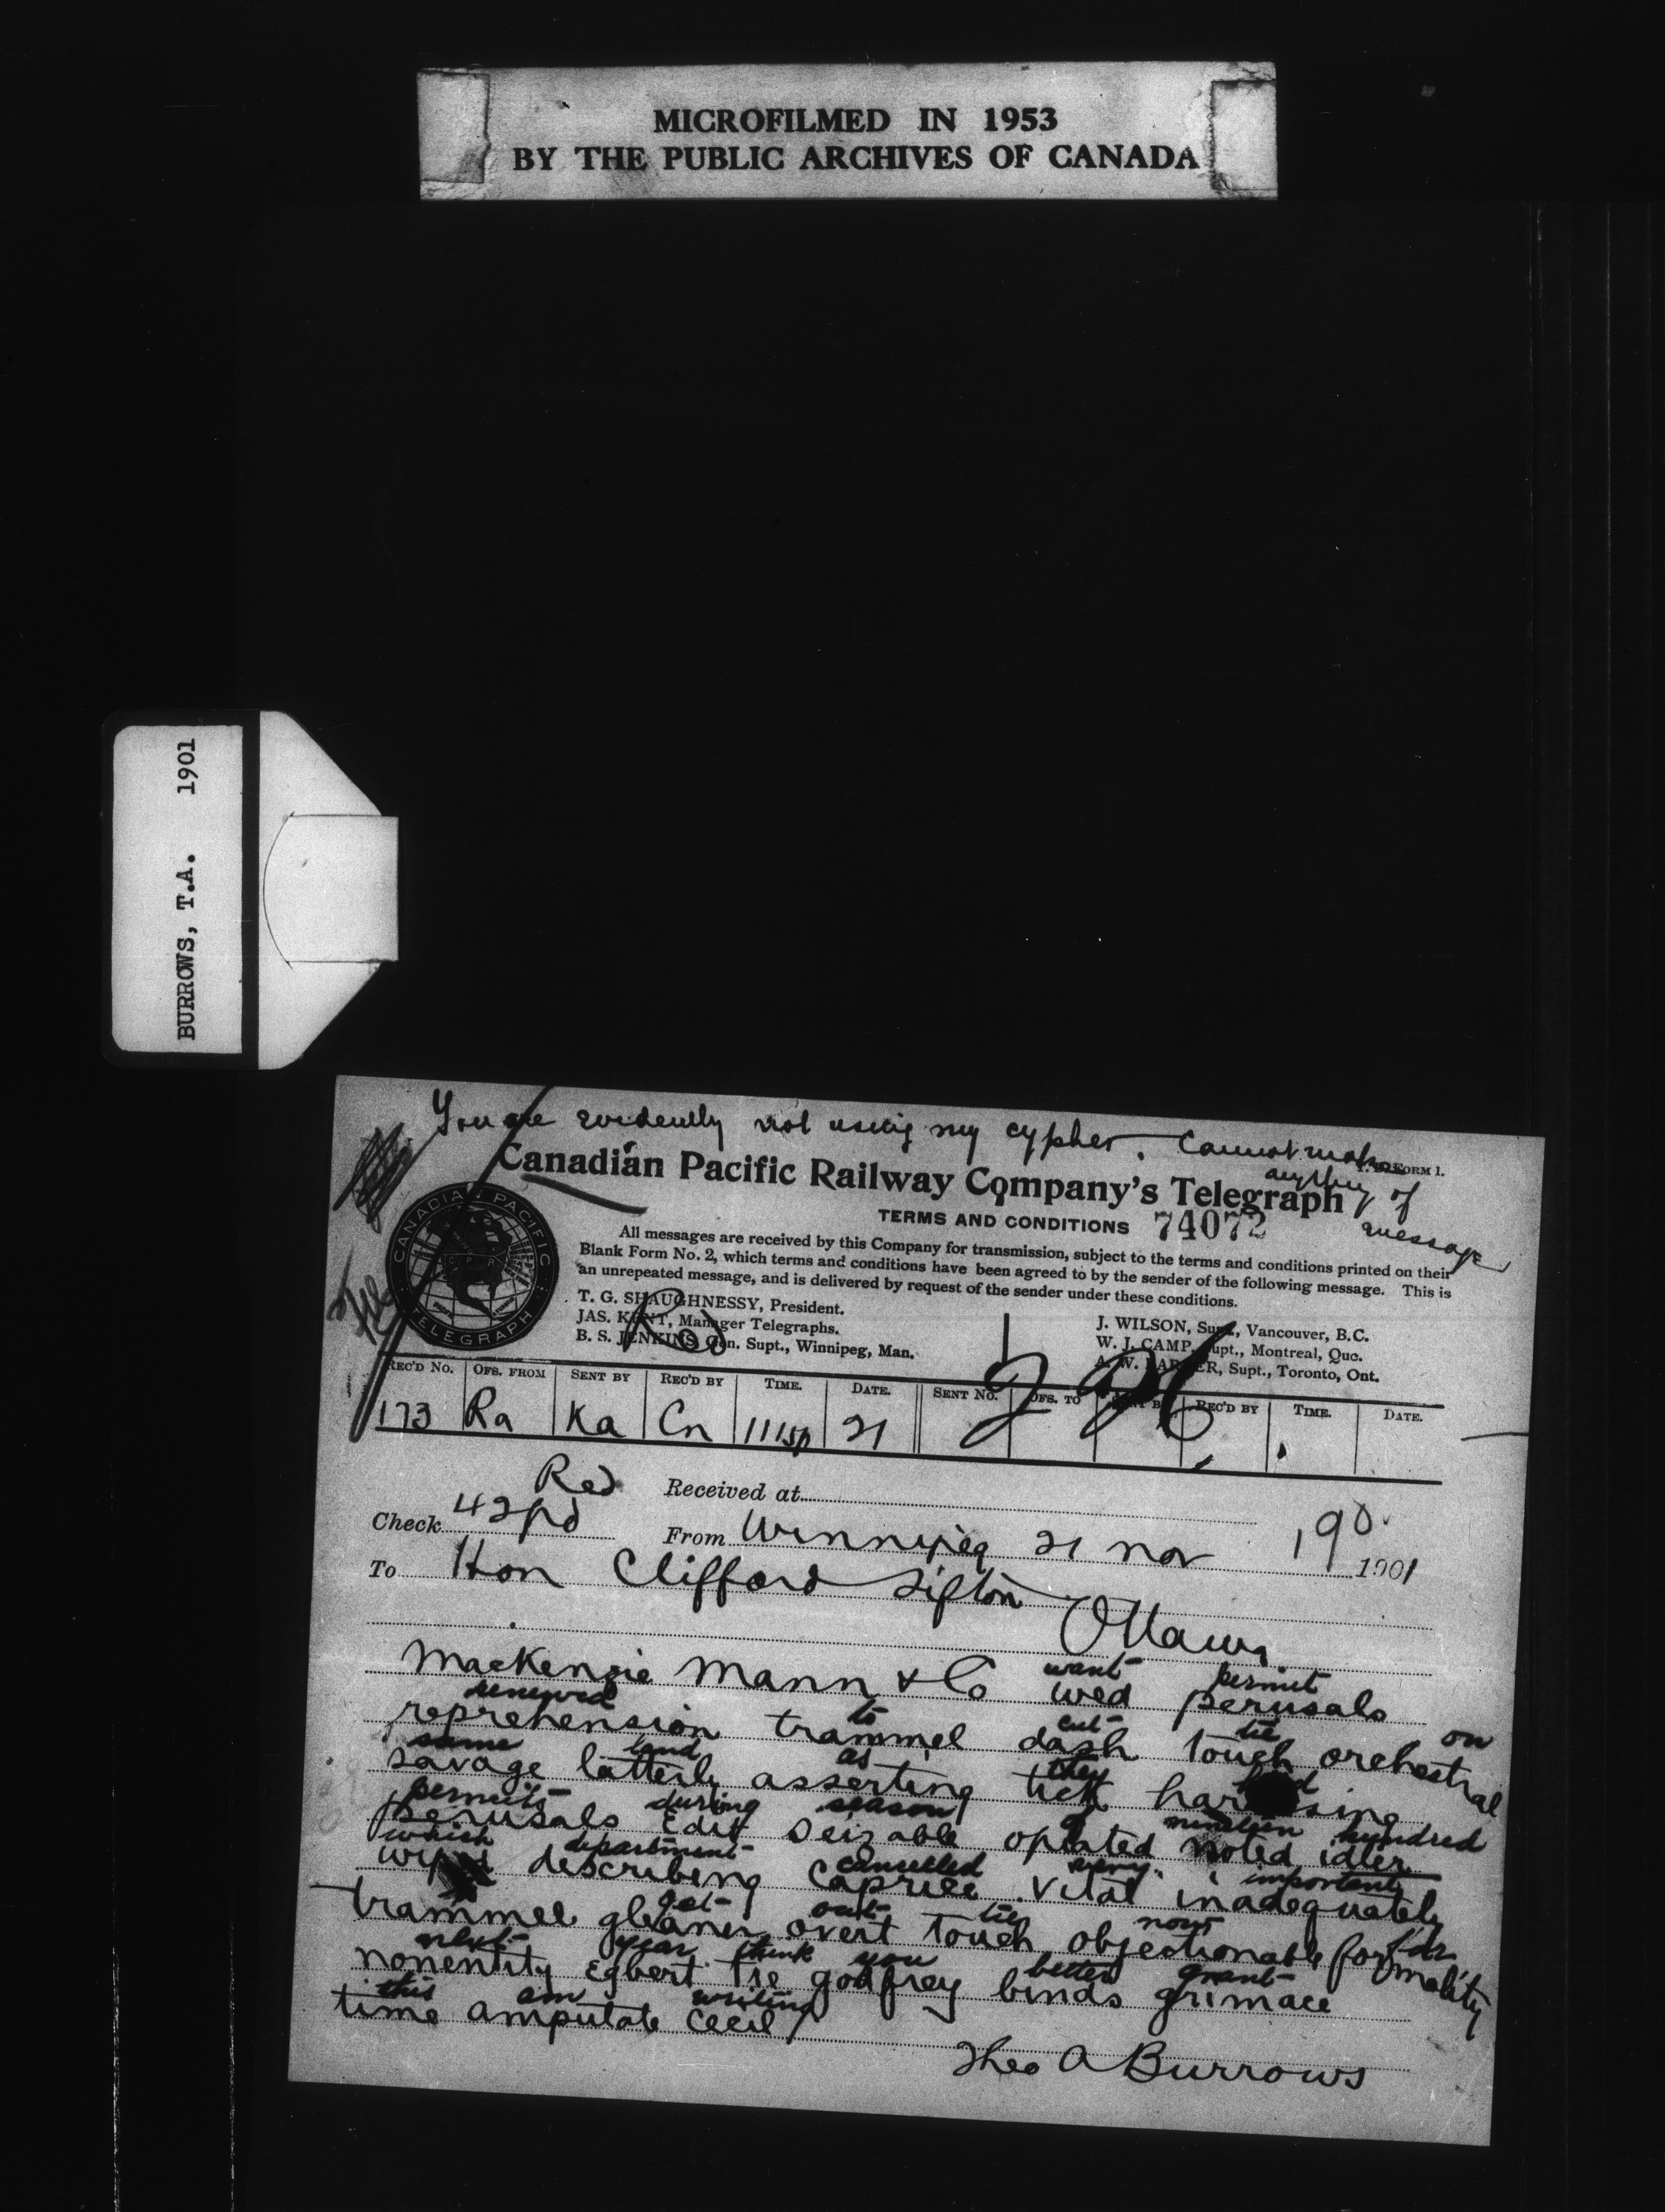 MICROFILMED IN 1953
BY THE PUBLIC ARCHIVES OF CANADA
BURROWS, T.A. 1901
You are evidently not using my cypher. Cannot make
anything of
message
FORM 1.
Canadian Pacific Railway Company's Telegraph
TERMS AND CONDITIONS 74072
All messages are received by this Company for transmission, subject to the terms and conditions printed on their
Blank Form No. 2, which terms and conditions have been agreed to by the sender of the following message. This is
an unrepeated message, and is delivered by request of the sender under these conditions.
CANADIAN PACIFIC
TELEGRAPH
T. G. SHAUGHNESSY, President.
JAS. KENT, Manager Telegraphs.
B. S. JENKINS, Gen. Supt., Winnipeg, Man.
J. WILSON, Supt., Vancouver, B.C.
W. J. CAMP, Supt., Montreal, Que.
A. W. BARBER, Supt., Toronto, Ont.
Red
REC'D NO. OFS. FROM SENT BY REC'D BY TIME. DATE. SENT NO. OFS. TO SENT BY REC'D BY TIME. DATE.
173 Ra Ka Cn 1115p 21
Red
Received at
Check 42pd From Winnipeg 21 nov 190 1901
To Hon Clifford Sifton
Ottawa
want permit
MacKenzie Mann & Co wed perusals
renewed to cut tie on
reprehension trammel dash touch orchestral
same land as they had
savage latterly asserting tick harassing
permits during season nineteen hundred
perusals Edit seizable opiated noted idler
which department cancelled very important
describing caprice vital inadequately
get out tie now for
trammel gleaner overt touch objectionable formality
next year think you better grant
nonentity Egbert tie godfrey binds grimace
this am writing
time amputate Cecil
Theo A Burrows